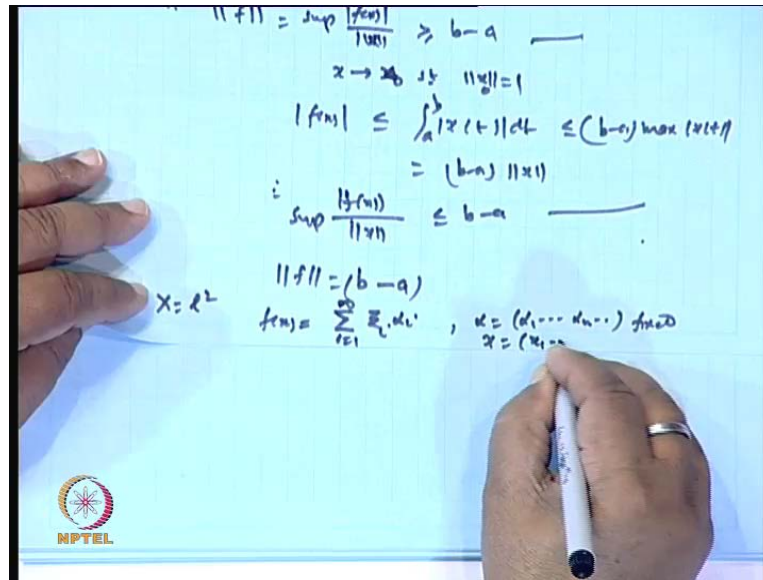 ||f|| = sup |f(x)| / ||x|| ≥ b-a
x → x₀ st ||x₀||=1
|f(x)| ≤ ∫ₐᵇ |x(t)| dt ≤ (b-a) max |x(t)|
= (b-a) ||x||
∴ sup |f(x)| / ||x|| ≤ b-a
||f|| = (b-a)
X = l²
f(x) = ∑_{i=1}^{∞} ξᵢ αᵢ , α = (α₁ ... αₙ ..) fixed
x = (x₁ ..
NPTEL